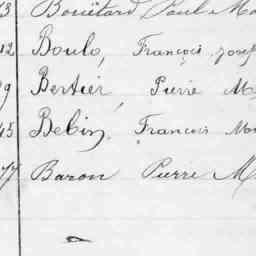 13 Bouëtard Paul Ma
12 Boulo, François Josep
29 Bertier, Pierre M
45 Bebin, François Mar
77 Baron Pierre M